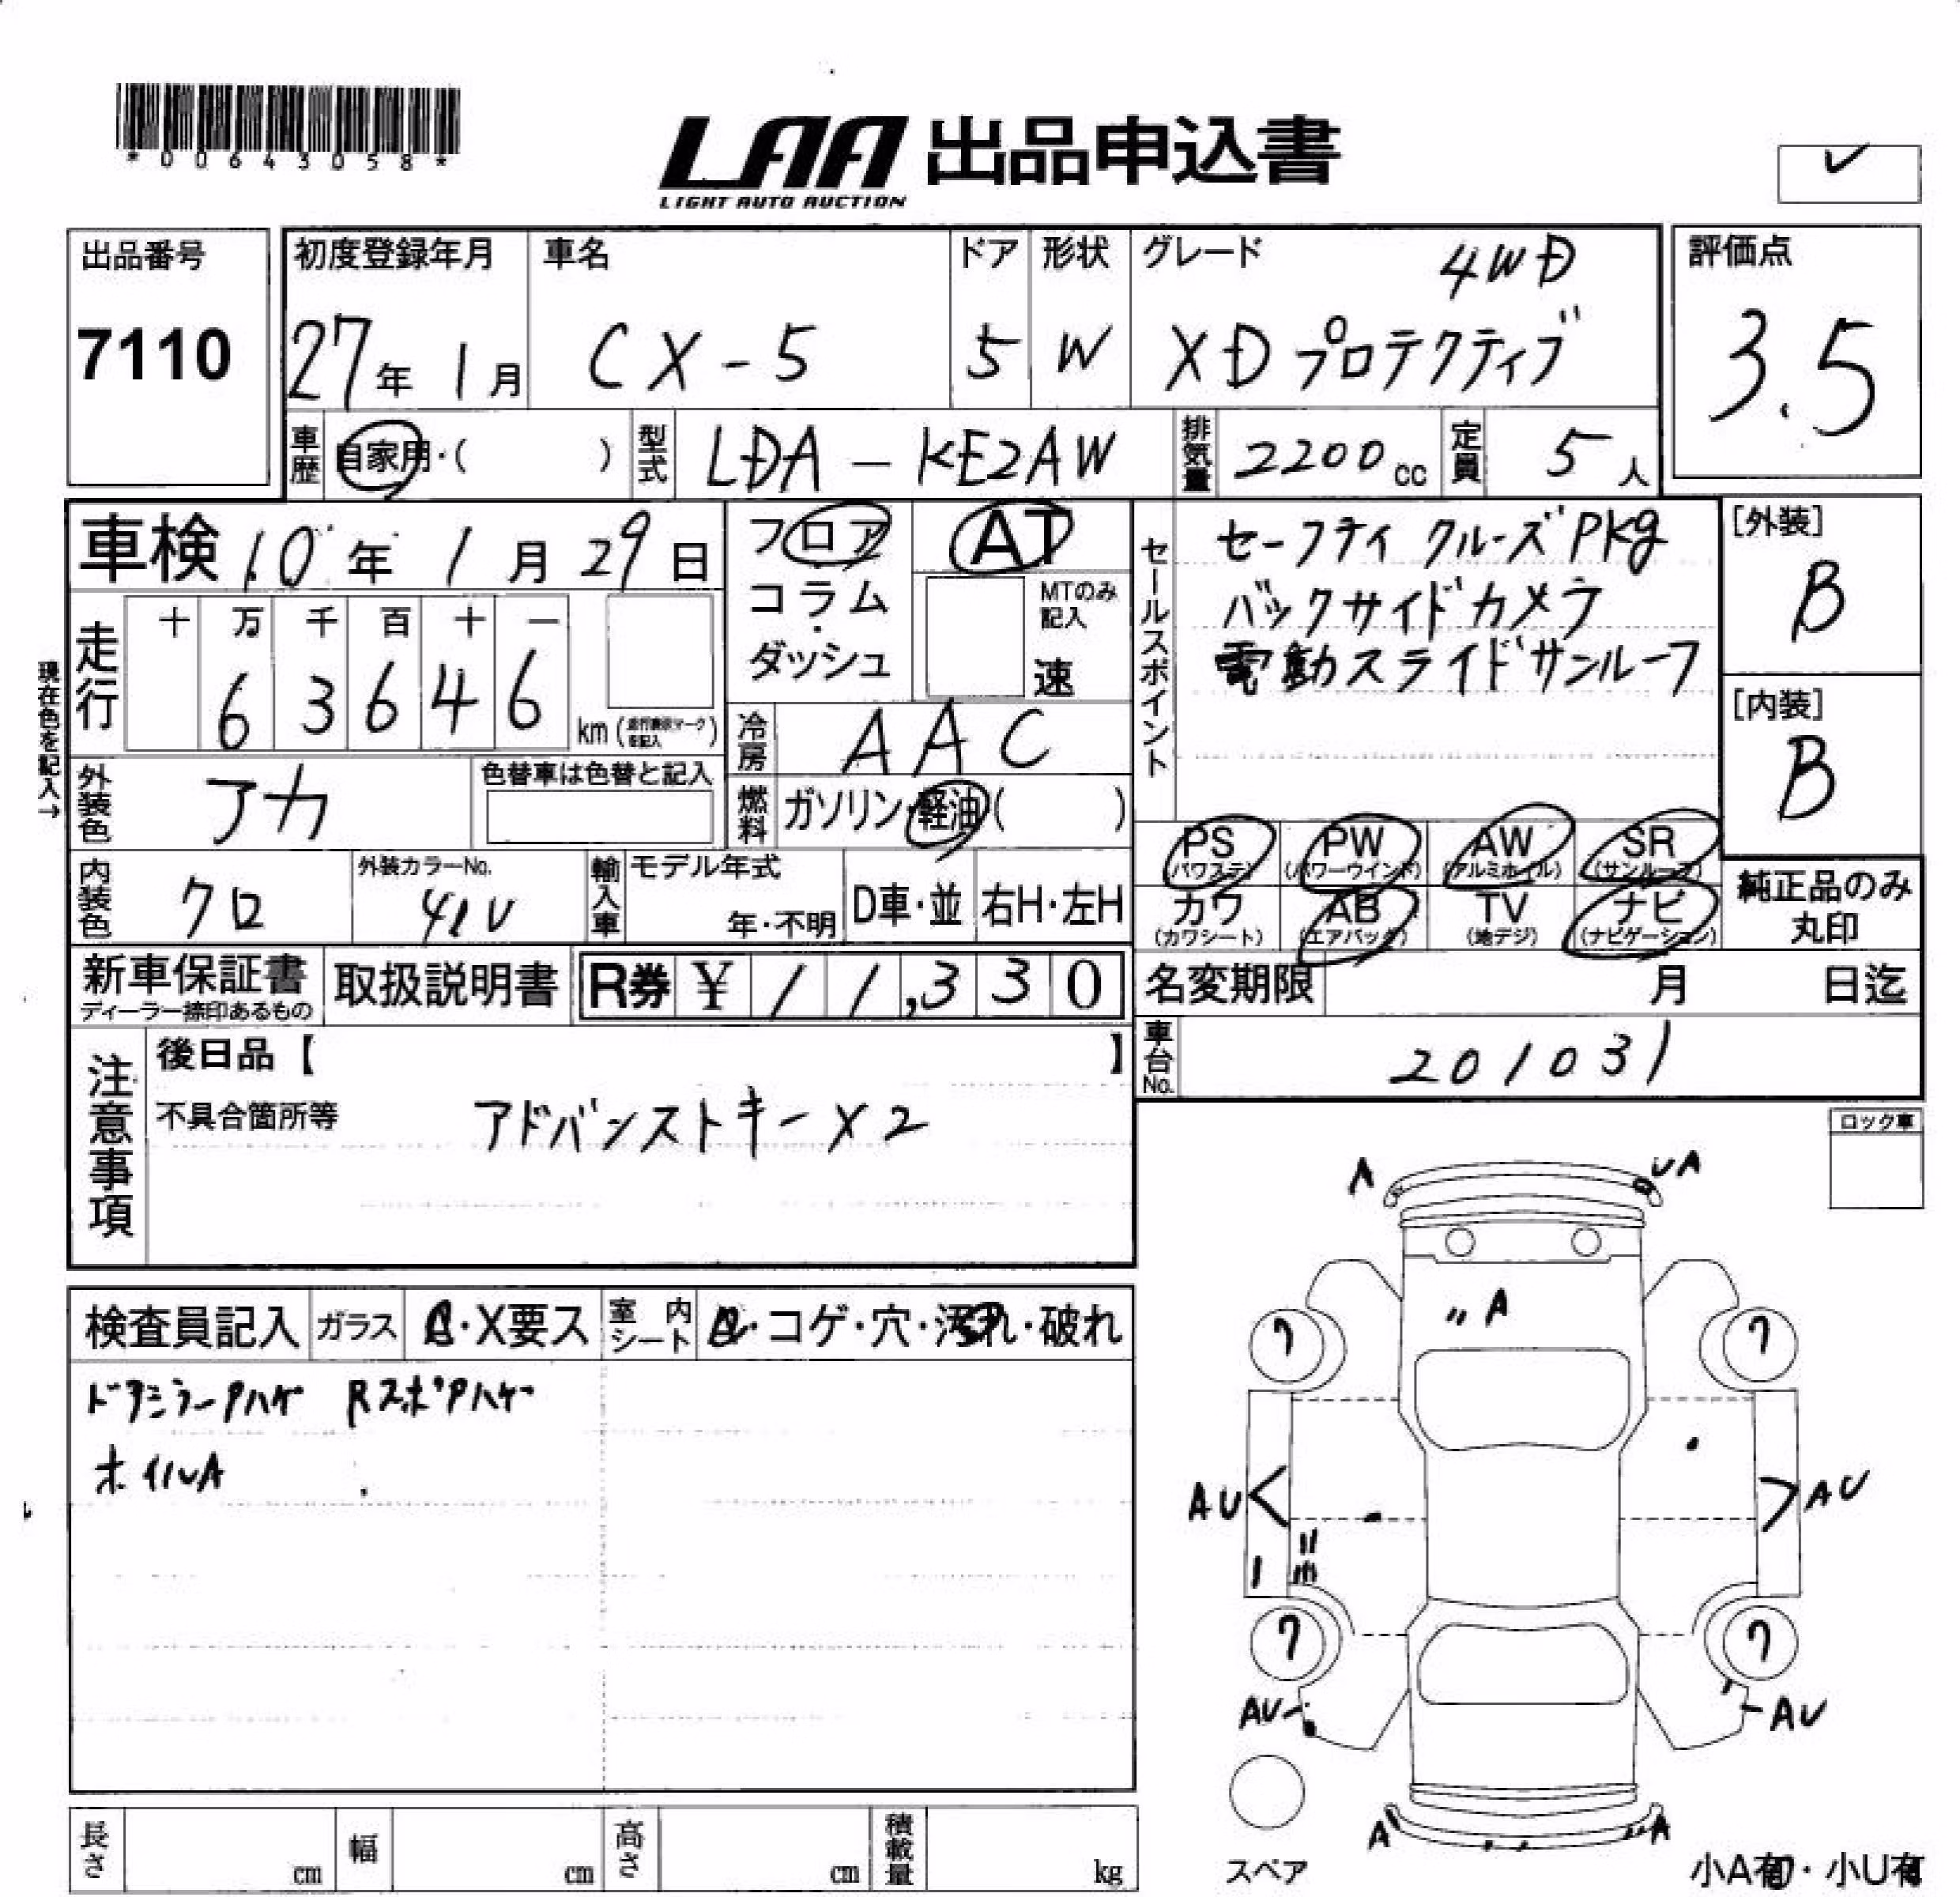 *00643058*
LAA 出品申込書
LIGHT AUTO AUCTION
出品番号
7110
初度登録年月
27年 1月
車名
CX-5
ドア
5
形状
W
グレード
4WD
XDプロテクティブ
評価点
3.5
車歴 自家用・( )
型式 LDA-KE2AW
排気量 2200cc
定員 5人
車検 10年 1月 29日
フロア
コラム
・
ダッシュ
AT
MTのみ
記入
速
セールスポイント
セーフティクルーズPkg
バックサイドカメラ
電動スライドサンルーフ
[外装]
B
[内装]
B
現在色を記入→
走行
十 万 千 百 十 一
6 3 6 4 6 km
冷房 AAC
外装色 アカ
色替車は色替と記入
燃料 ガソリン・軽油( )
PS (パワステ)
PW (パワーウインド)
AW (アルミホイル)
SR (サンルーフ)
カワ (カワシート)
AB (エアバッグ)
TV (地デジ)
ナビ (ナビゲーション)
純正品のみ
丸印
内装色 クロ
外装カラーNo.
41V
輸入車
モデル年式
年・不明
D車・並
右H・左H
新車保証書
ディーラー捺印あるもの
取扱説明書
R券 ¥11,330
名変期限 月 日迄
車台No. 201031
注意事項
後日品【 】
不具合箇所等
アドバンストキー×2
ロック車
検査員記入
ガラス
・X要ス
室内
シート
・コゲ・穴・汚れ・破れ
ドアミラーAハゲ RスポAハゲ
ホイルA
A
UA
A
7
7
AU
AU
7
7
AU
AU
A
A
スペア
小A有・小U有
長さ cm
幅 cm
高さ cm
積載量 kg